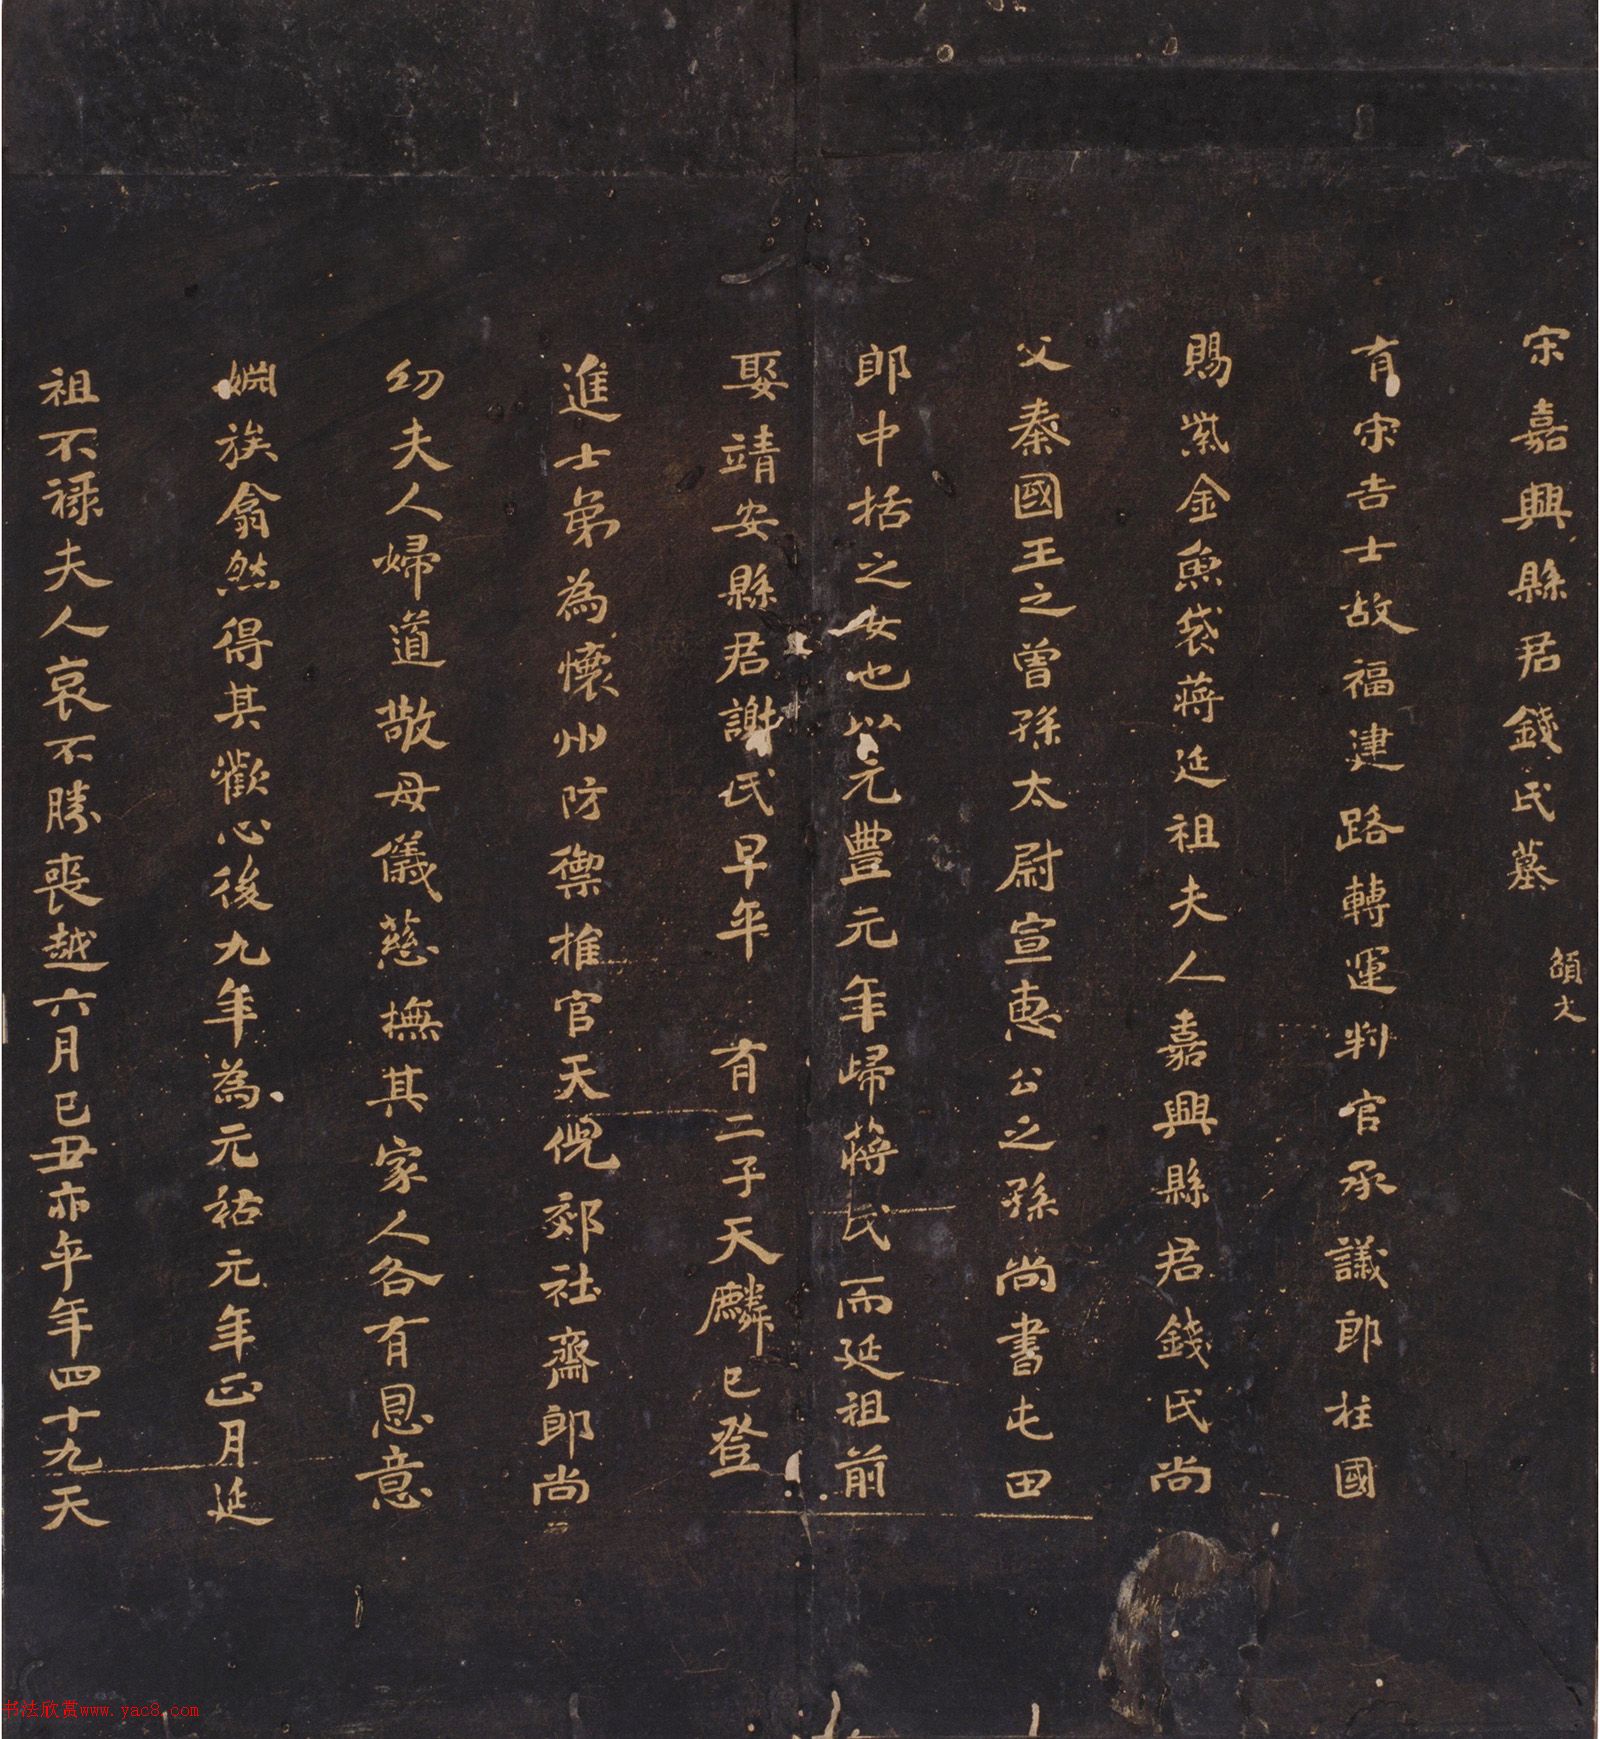 宋嘉興縣君錢氏墓
頟文
有宋吉士故福建路轉運判官承議郎柱國
賜紫金魚袋蔣延祖夫人嘉興縣君錢氏尚
父秦國王之曾孫太尉宣惠公之孫尚書屯田
郎中括之女也以元豐元年歸蔣氏而延祖前
娶靖安縣君謝氏早卒 有二子天麟已登
進士弟為懷州防禦推官天倪郊社齋郎尚
幼夫人婦道敬母儀慈撫其家人各有恩意
婣族翕然得其歡心後九年為元祐元年正月延
祖不祿夫人哀不勝喪越六月己丑亦卒年四十九天
书法欣赏www.yac8.com